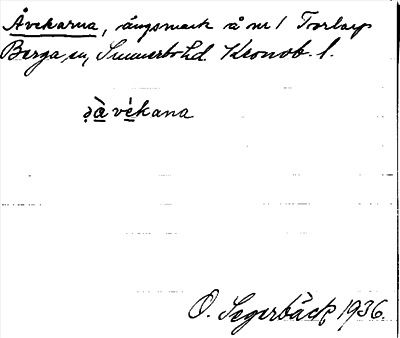 Åvekarna, ängsmark å nr 1 Torlarp
Berga sn, Sunnerbo hd. Kronob. l.
ʒ̀à vékana
O. Segerbäck 1936.